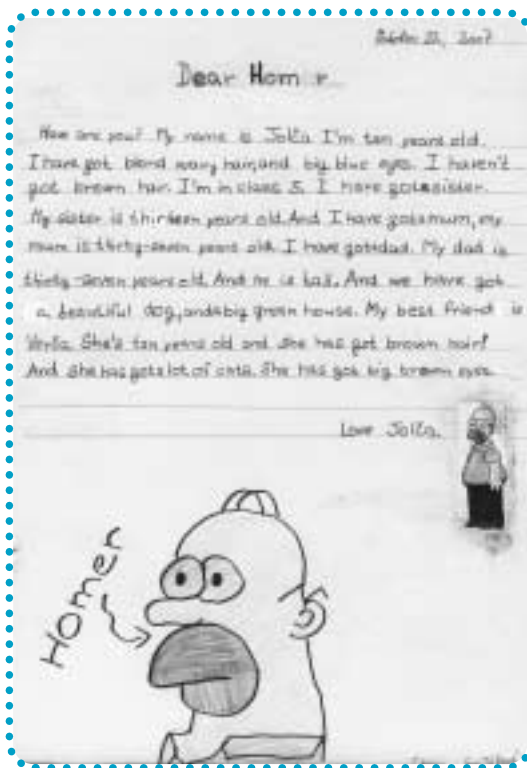 October 22, 2007
Dear Homer
How are you? My name is Jolta I'm ten years old.
I have got blond wavy hair, and big blue eyes. I haven't
got brown hair. I'm in class 5. I have got a sister.
My sister is thirteen years old. And I have got a mum, my
mum is thirty-seven years old. I have got a dad. My dad is
thirty-seven years old. And he is tall. And we have got
a beautiful dog, and a big green house. My best friend is
She's ten years old and she has got brown hair!
And she has got a lot of cats. She has got big brown eyes.
Love Jolta.
Homer